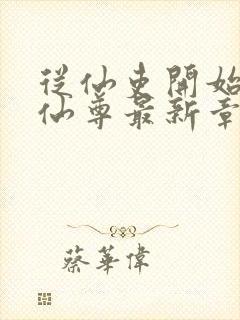 從仙吏開始
仙尊最新章
蔡華偉